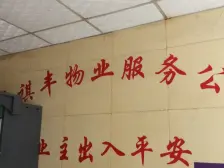 祺丰物业服务公
业主出入平安